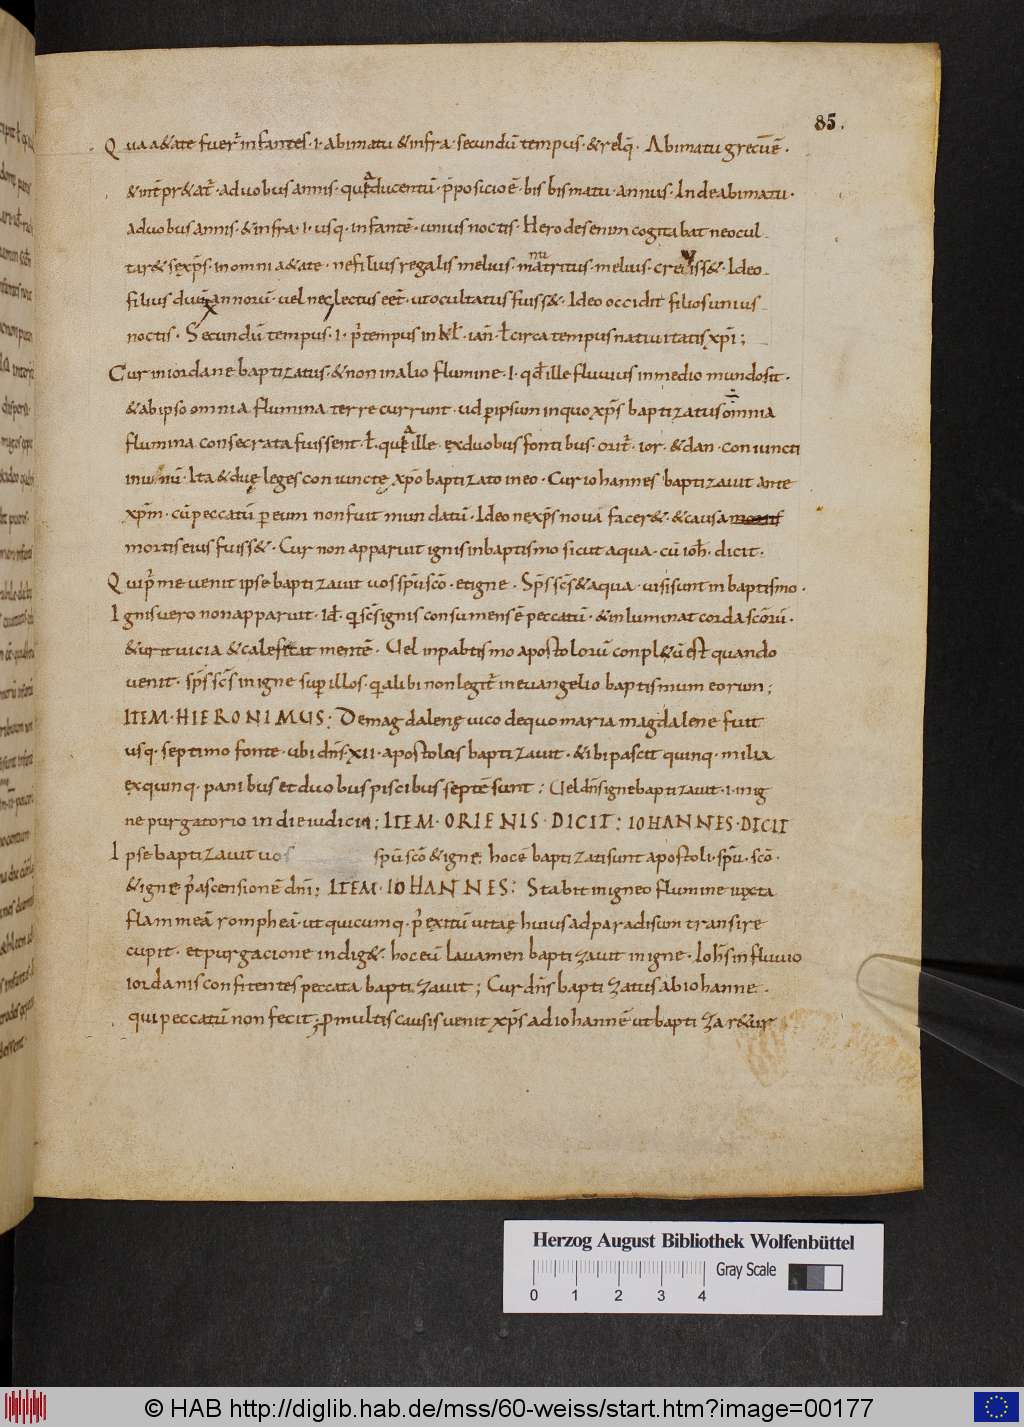 85.
Qua aetate fuer̄ infantes · i · abimatu & infra · secundū tempus · & relq̄ · Abimatu grecūē ·
& int̄pr&at̄ · a duobus annis · quia ducentū · p̄posicio ē · bis bismatu · annus · Inde abimatu ·
a duobus annis · & infra · i · usq · infantē · unius noctis · Herodes enim cogitabat ne ocul
tar& se xp̄s · in omni aetate · ne filius regalis melius · nu matritus · melius · creviss& · Ideo
filius duū annorū · vel neglectus eēt · ut ocultatus fuiss& · Ideo occidit filios unius
noctis · Secundū tempus · i · p̄ tempus in kł · ian̄ · ł circa tempus nativitatis xp̄i ;
Cur in iordane baptizatus · & non in alio flumine · i · qđ ille fluvius in medio mundo sit ·
& ab ipso omnia flumina terre currunt · ud p ipsum in quo xp̄s baptizatus omnia
flumina consecrata fuissent · ł · quia ille ex duobus fontibus · orit̄ · ior · & dan · coniuncti
in unū · Ita & duę leges coniunctę xp̄o baptizato in eo · Cur iohannes baptizavit ante
xp̄m · cū peccatū p eum non fuit mundatū · Ideo ne xp̄s nova facer& · & causa
mortis eius fuiss& · Cur non apparuit ignis in baptismo sicut aqua · cū ioh̄ · dicit ·
Qui p̄ me venit ipse baptizavit vos sp̄u sc̄o · et igne · Sp̄s sc̄s & aqua · visi sunt in baptismo ·
Ignis vero non apparuit · Id · q sc̄s ignis consumens ē peccatū · & inluminat corda sc̄orū ·
& urit vicia & calefitat mentē · Vel in pabtismo apostolorū conpl&ū est quando
venit · sp̄s sc̄s in igne super illos · q alibi non legit̄ in evangelio baptismum eorum ;
ITEM · HIERONIMUS : De magdalenę vico de quo maria magdalene fuit
usq · septimo fonte · ubi dn̄s · xii · apostolus baptizavit · & ibi pascit quinq · milia
ex quinq · panibus et duobus piscibus septē sunt : Vel dn̄s igne baptizavit · i · in ig
ne purgatorio in die iudicii ; ITEM · ORIENIS · DICIT : IOHANNES · DICIT
Ipse baptizavit vos sp̄u sc̄o & igne ; hoc ē baptizati sunt apostoli · sp̄u · sc̄o ·
& igne p̄ ascensionē dn̄i ; ITEM · IOHANNES : Stabit in igneo flumine iuxta
flammeā rompheā · ut quicumq · p̄ exitū vitae huius ad paradisum transire
cupit · et purgacione indig& · hoc eū lavamen baptizavit in igne · Ioh̄s in fluvio
iordanis confitentes peccata baptizavit ; Cur dn̄s baptizatus ab iohanne ·
qui peccatū non fecit ; p multis causis venit xp̄s ad iohannē ut baptizar&ur
Herzog August Bibliothek Wolfenbüttel
Gray Scale
0 1 2 3 4
© HAB http://diglib.hab.de/mss/60-weiss/start.htm?image=00177